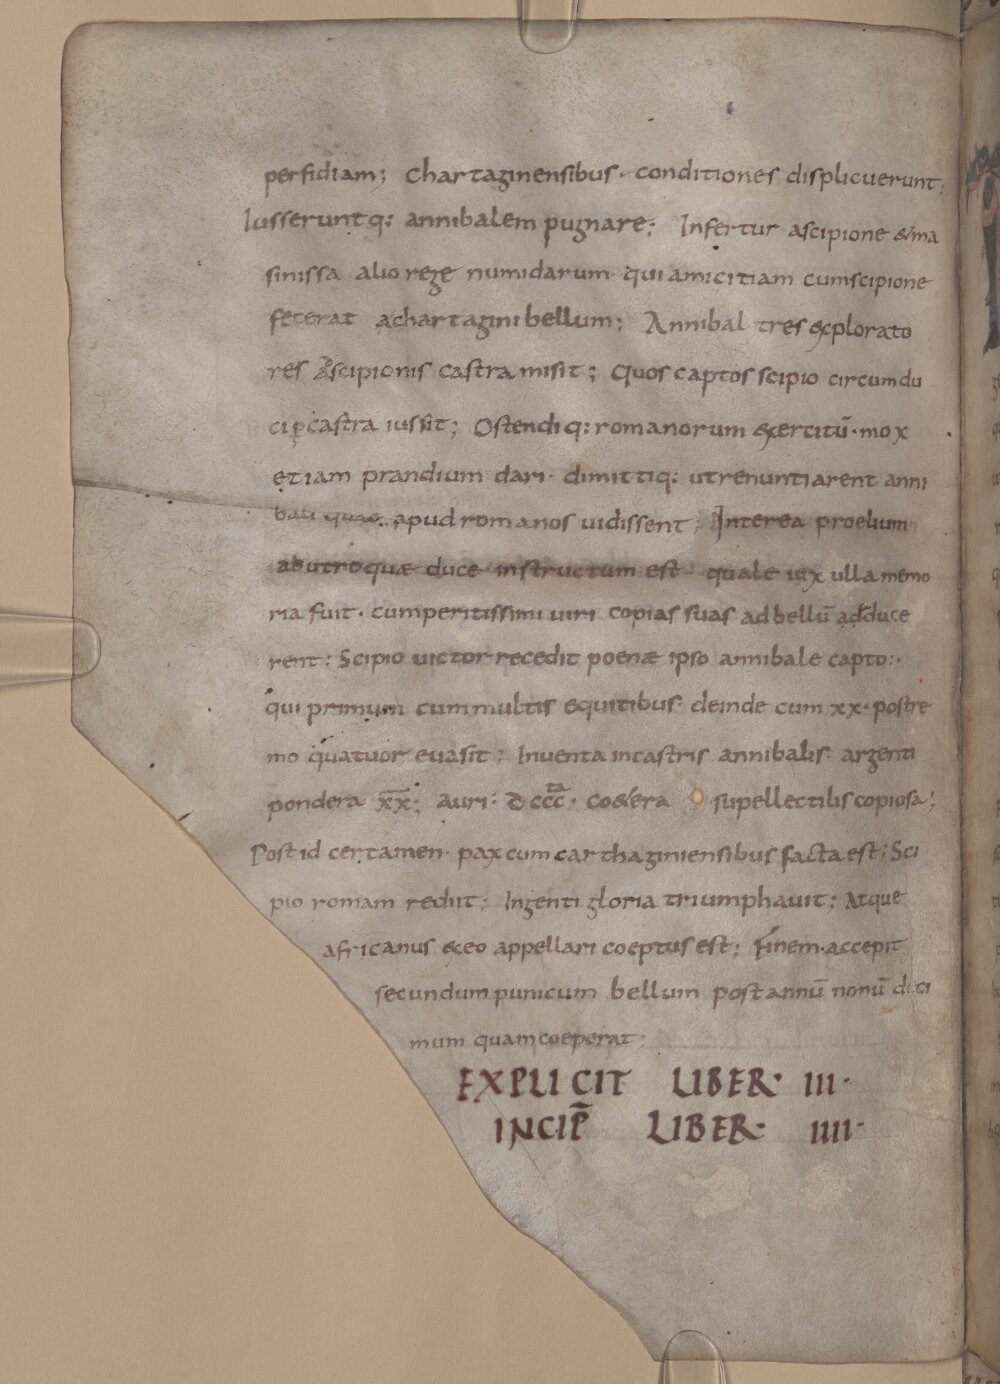 perfidiam; Chartaginensibus· conditiones displicuerunt;
Iusseruntq: annibalem pugnare; Infertur ascipione &ma
sinissa alio rege numidarum· qui amicitiam cumscipione
feterat achartagini bellum; Annibal tres explorato
res Ascipionis castra misit; Quos captos scipio circumdu
ci p̱ castra iussit; Ostendiq: romanorum exercitū· mox
etiam prandium dari· dimittiq: utrenuntiarent anni
bali quae apud romanos uidissent; Interea proelium
abutroquæ duce instructum est quale uix ulla memo
ria fuit· cumperitissimi uiri copias suas adbellū adduce
rent: Scipio uictor recedit poenæ ipso annibale capto:·
qui primum cummultis equitibus· deinde cum xx· postre
mo quatuor euasit; Inuenta incastris annibalis argenti
pondera x̅x̅; auri· DCCC ta· co&era supellectilis copiosa;
Post id certamen· pax cum carthaginiensibus facta est; Sci
pio romam rediit; Ingenti gloria triumphauit; Atque
africanus exeo appellari coeptus est; Finem·accepit
secundum punicum bellum post annū nonū deci
mum quam coeperat·
EXPLICIT LIBER· III·
INCIP̄ LIBER· IIII·